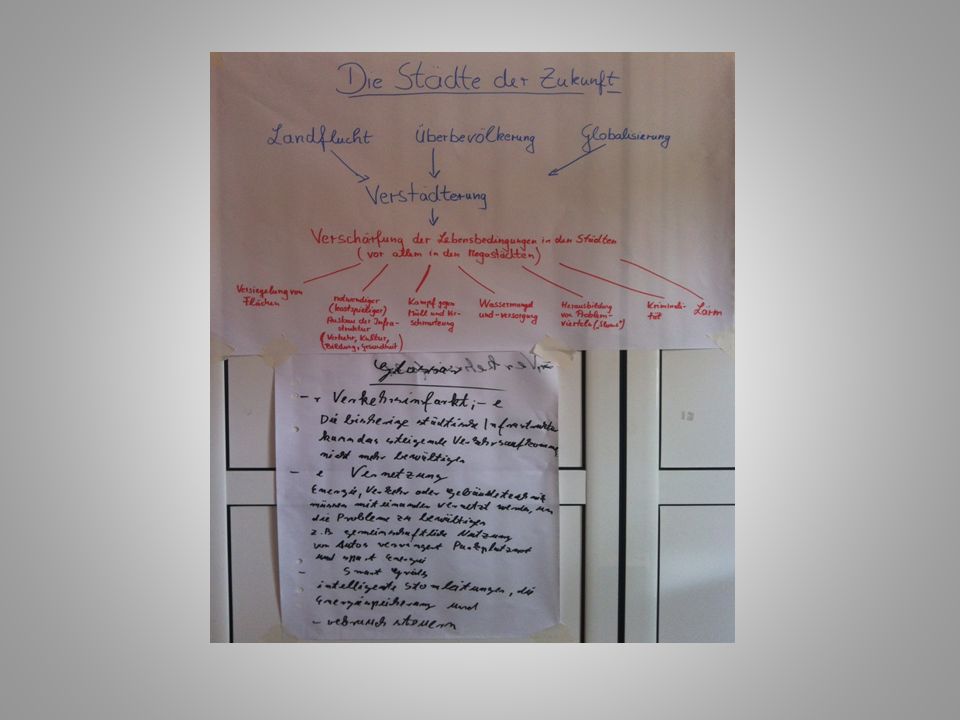 Die Städte der Zukunft
Landflucht Überbevölkerung Globalisierung
Verstädterung
Verschärfung der Lebensbedingungen in den Städten
(vor allem in den Megastädten)
Versiegelung von
Flächen
notwendiger
(kostspieliger)
Ausbau der Infra-
struktur
(Verkehr, Kultur,
Bildung, Gesundheit)
Kampf gegen
Müll und Ver-
schmutzung
Wassermangel
und -versorgung
Herausbildung
von Problem-
vierteln („Slums“)
Kriminali-
tät
Lärm
Glossar
- r Verkehrsinfarkt, -e
Die bisherige städtische Infrastruktur
kann das steigende Verkehrsaufkommen
nicht mehr bewältigen
- e Vernetzung
Energie, Verkehr oder Gebäudetechnik
müssen miteinander vernetzt werden, um
die Probleme zu bewältigen
z.B. gemeinschaftliche Nutzung
von Autos verringert Parkplatznot
und spart Energie
- Smart Grids
intelligente Stromleitungen, die
Energiespeicherung und